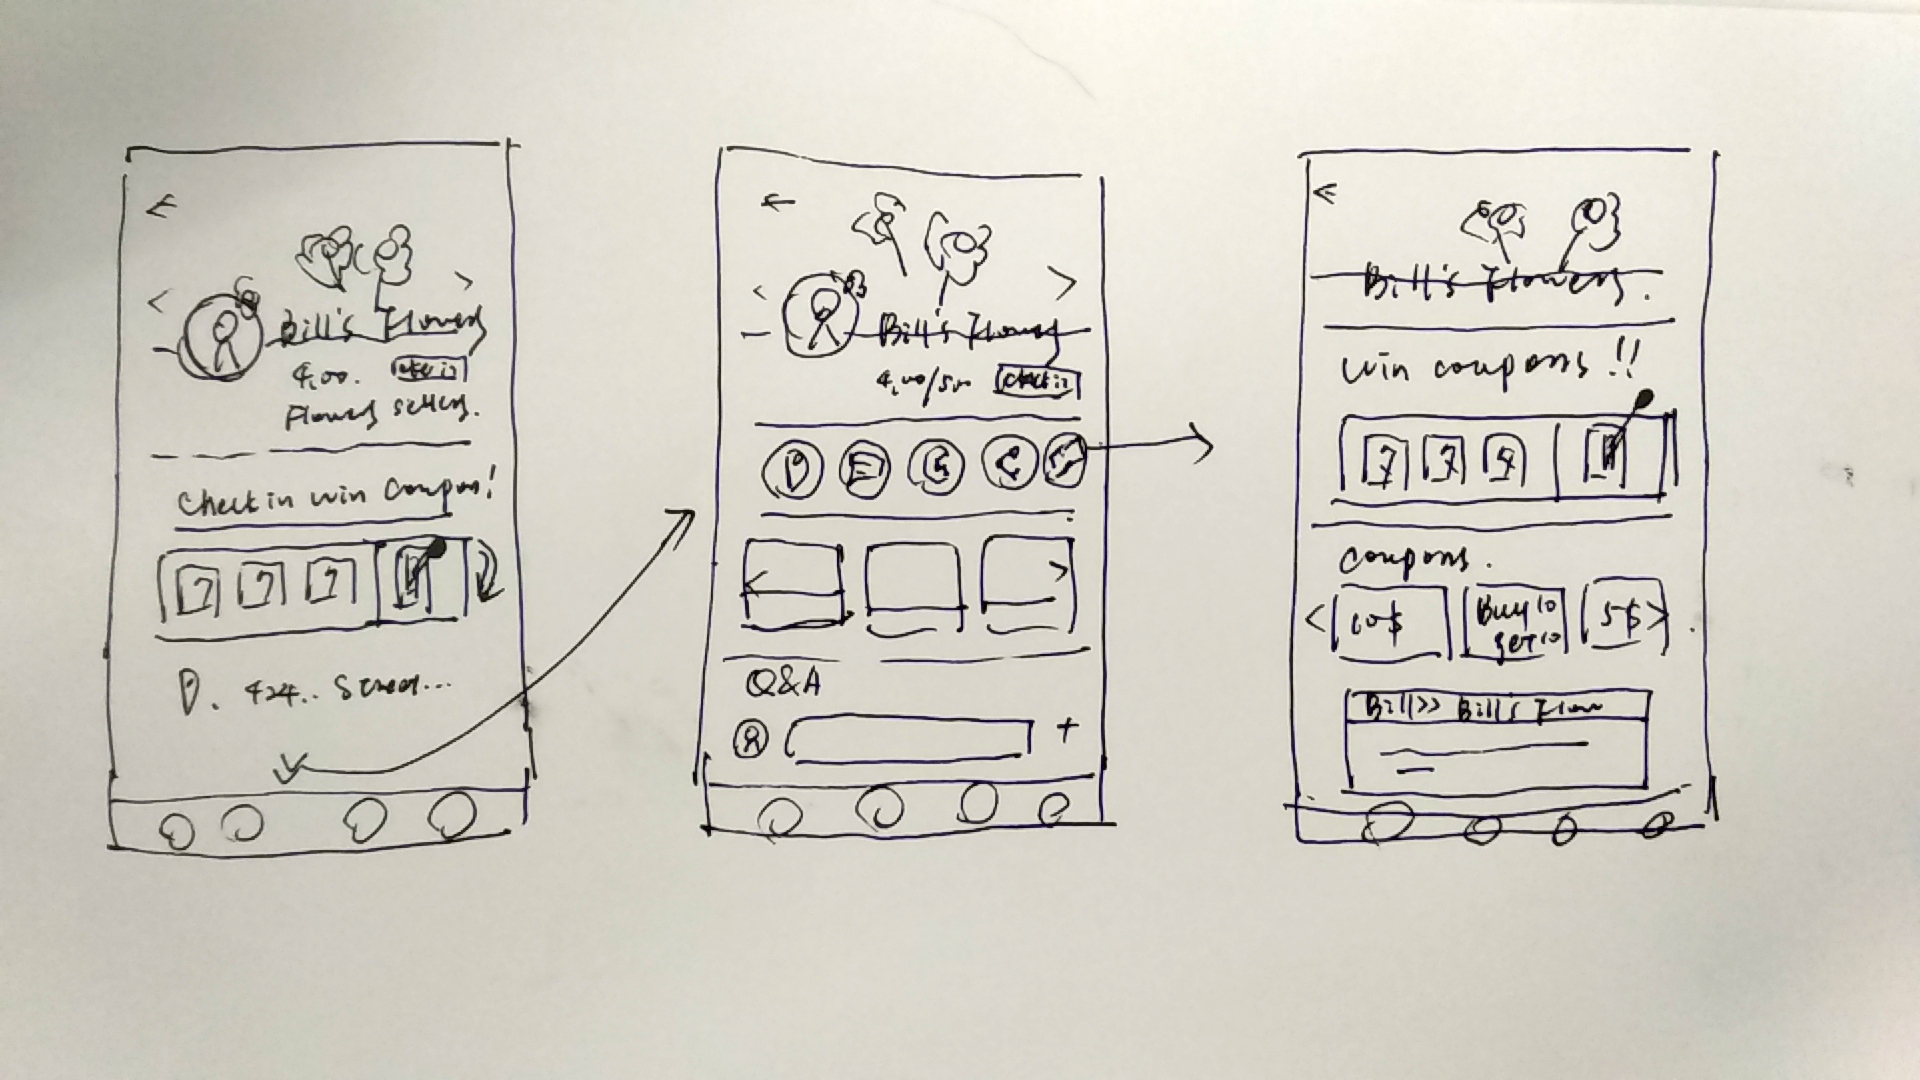 Bill's Flowers
4.00. Check in
Flowers sellers.
Check in win Coupon!
7 7 7
424.. Street...
Bill's Flowers
4.00/5.00 Check in
Q&A
+
Bill's Flowers.
Win coupons !!
7 7
coupons.
10$ Buy 10 5$
get 10
Bill>> Bill's Flow